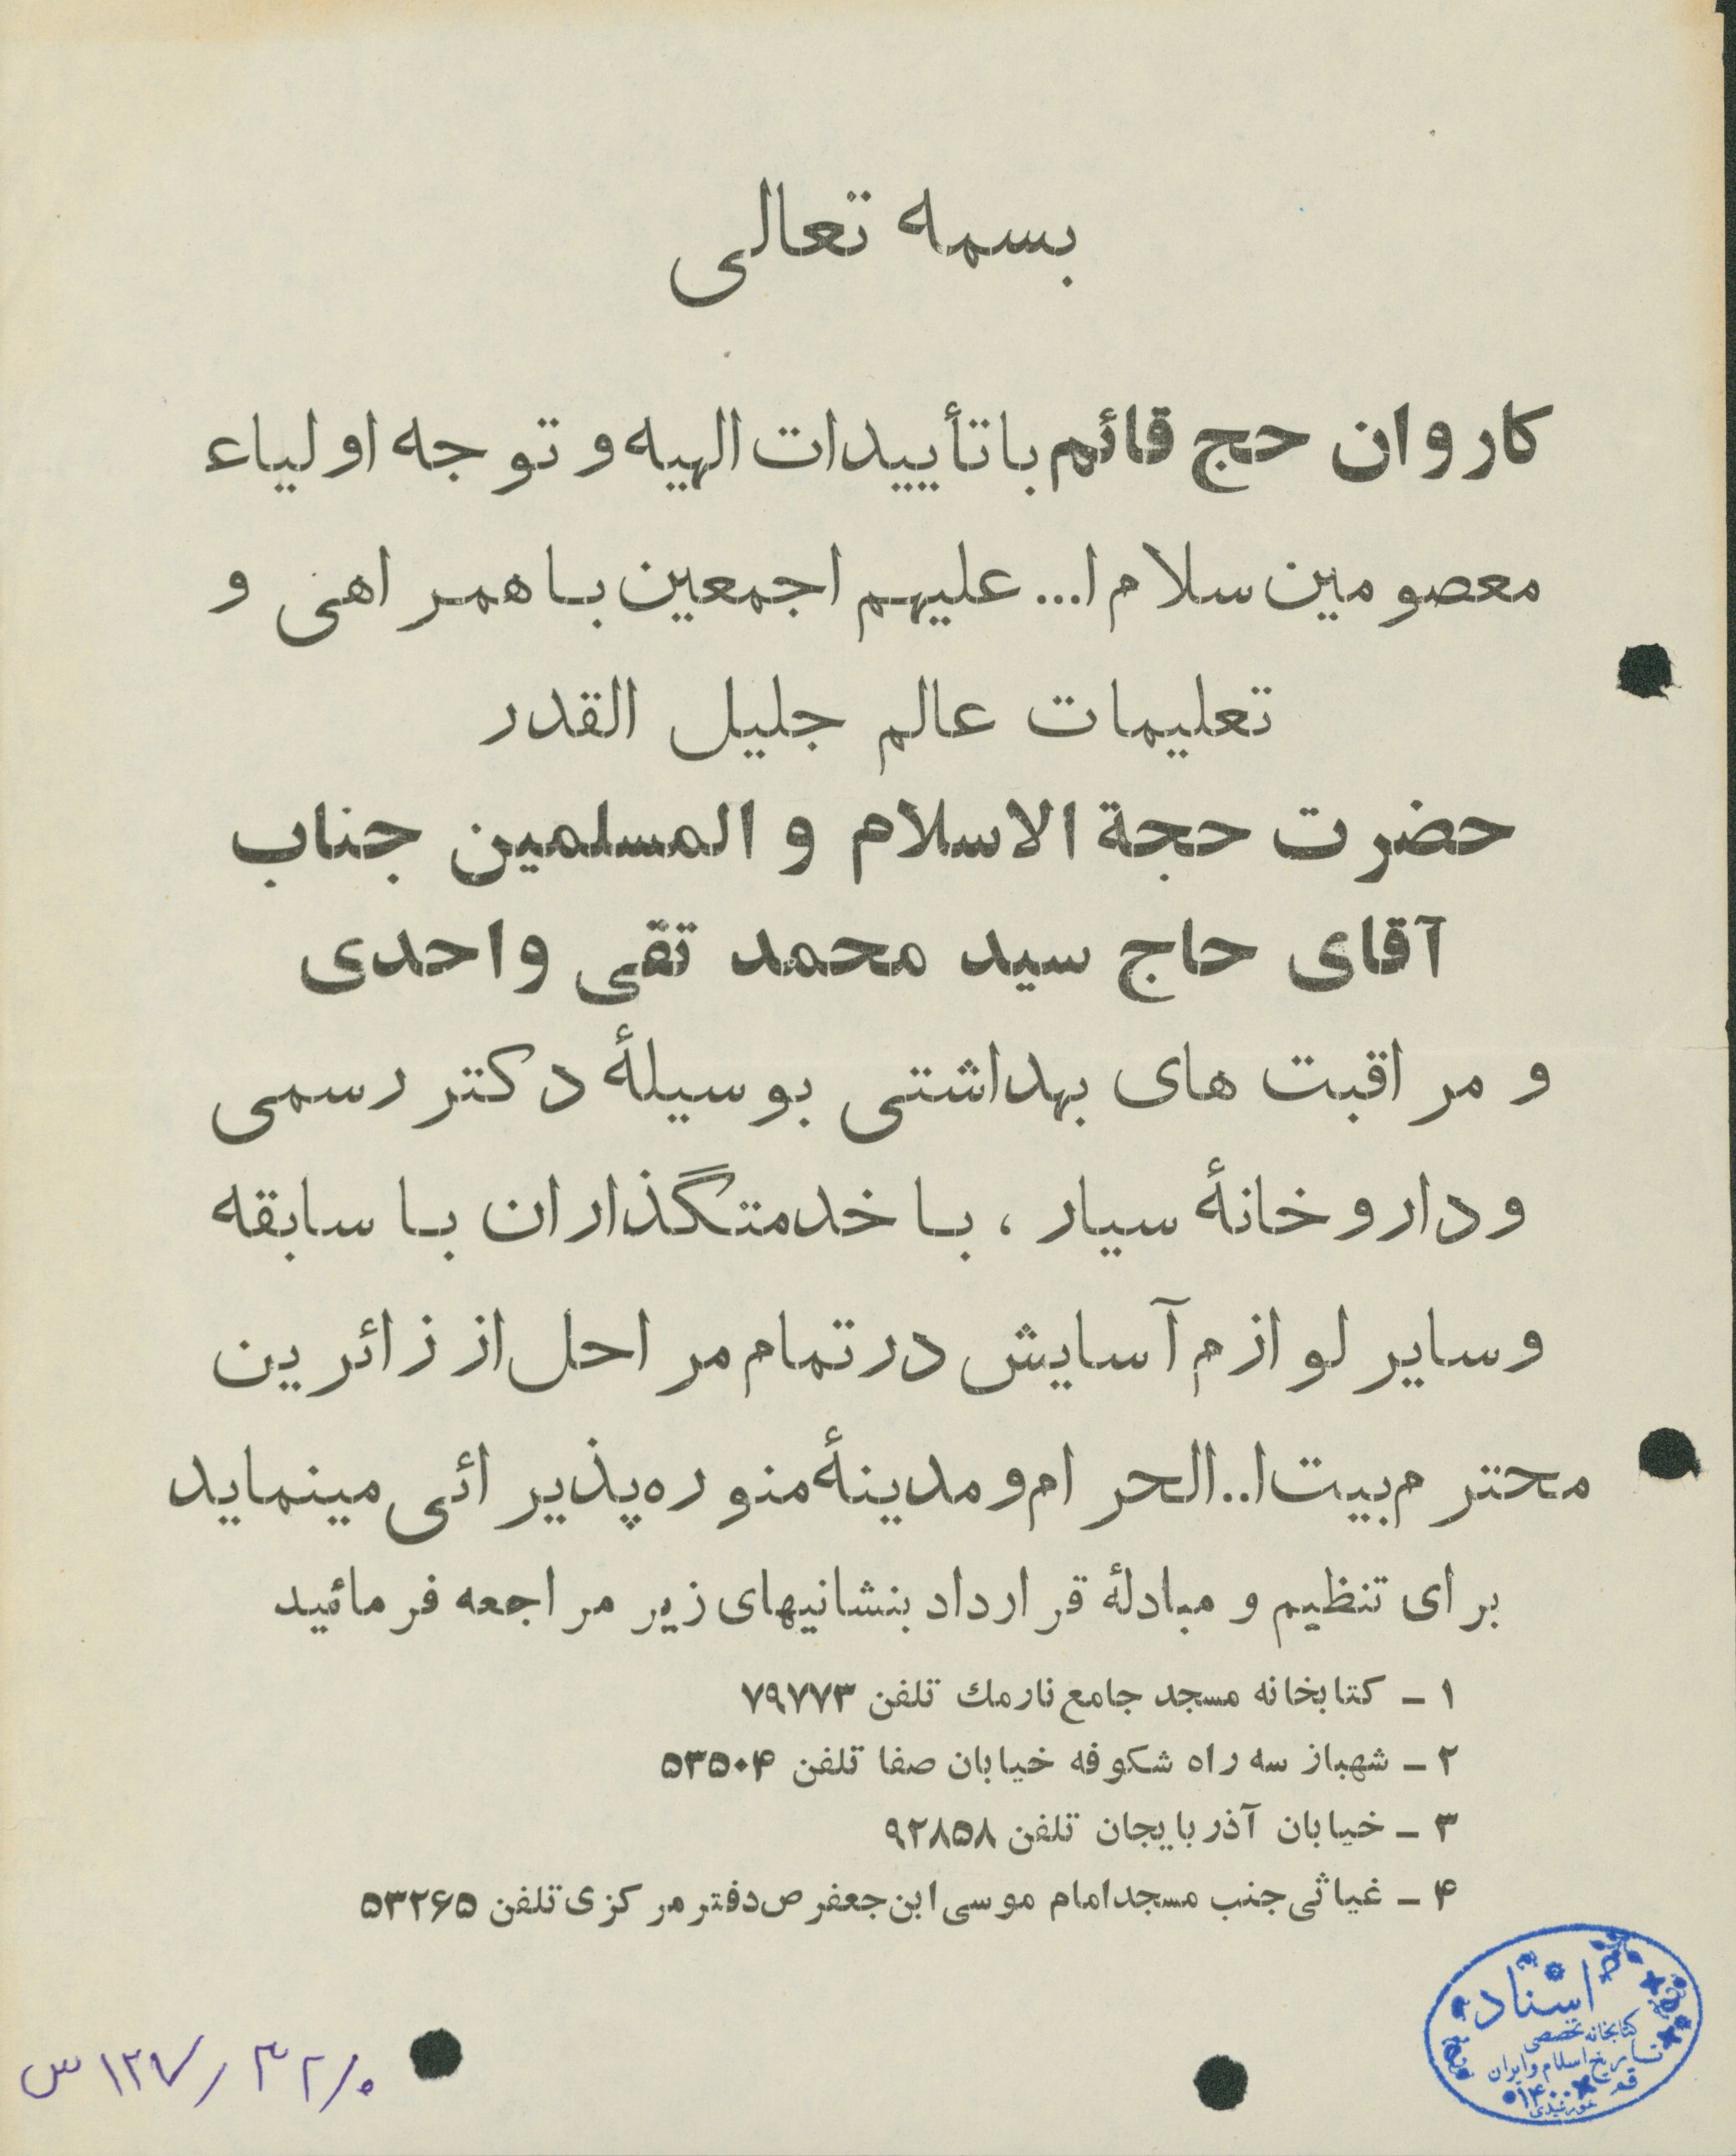 بسمه تعالی
کاروان حج قائم با تأییدات الهیه و توجه اولیاء
معصومین سلام ا... علیهم اجمعین با همراهی و
تعلیمات عالم جلیل القدر
حضرت حجة الاسلام و المسلمین جناب
آقای حاج سید محمد تقی واحدی
و مراقبت های بهداشتی بوسیلهٔ دکتر رسمی
و داروخانهٔ سیار ، با خدمتگذاران با سابقه
و سایر لوازم آسایش در تمام مراحل از زائرین
محترم بیت ا.. الحرام و مدینهٔ منوره پذیرائی مینماید
برای تنظیم و مبادلهٔ قرارداد بنشانیهای زیر مراجعه فرمائید
۱ ـ کتابخانه مسجد جامع نارمك تلفن ۷۹۷۷۳
۲ ـ شهباز سه راه شکوفه خیابان صفا تلفن ۵۳۵۰۴
۳ ـ خیابان آذربایجان تلفن ۹۲۸۵۸
۴ ـ غیاثی جنب مسجد امام موسی ابن جعفر ص دفتر مرکزی تلفن ۵۳۲۶۵
اسناد
کتابخانه تخصصی
تاریخ اسلام و ایران
قم
۱۴۰۰
خورشیدی